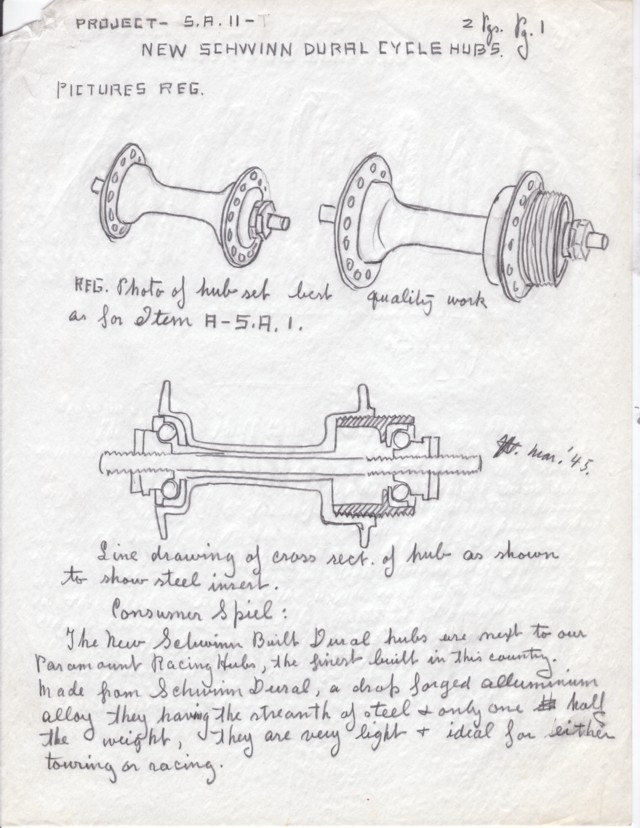 PROJECT- S.A. 11-T
2 Pgs. Pg. 1
NEW SCHWINN DURAL CYCLE HUBS.
PICTURES REG.
REG. Photo of hub set best quality work
as for Item A-S.A. 1.
Mar. '45.
Line drawing of cross sect. of hub as shown
to show steel insert.
Consumer Spiel:
The New Schwinn Built Dural hubs are next to our
Paramount Racing Hubs, the finest built in this country.
Made from Schwinn Dural, a drop forged alluminium
alloy they having the streanth of steel & only one half
the weight, they are very light & ideal for either
touring or racing.